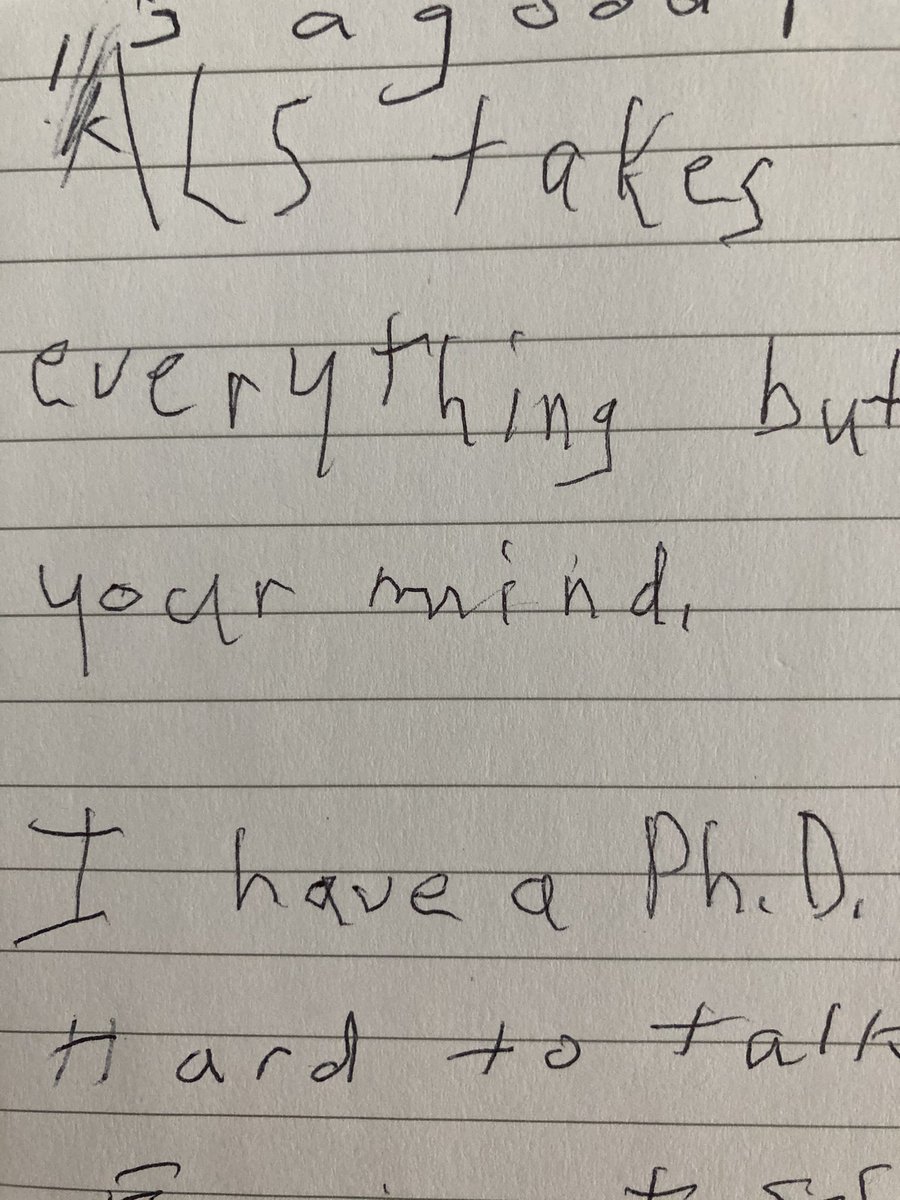 a good
ALS takes
everything but
your mind.
I have a Ph.D.
Hard to talk